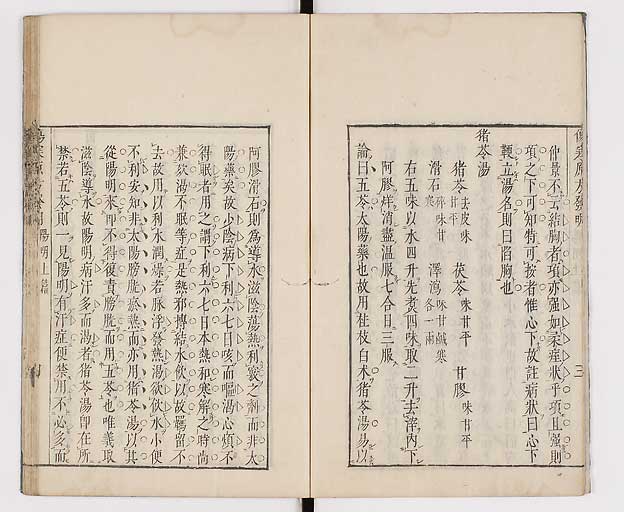 仲景不云結胸者項亦强如柔痙狀乎項且强則
項之下可知特可按者惟心下故註病狀曰心下
鞕立湯名則曰䧟胸也
猪苓湯
猪苓去皮味甘平 茯苓味甘平 甘膠味甘平
滑石碎味甘寒 澤瀉味甘鹹寒各一兩
右五味以水四升先煮四味取二升去滓內下
阿膠烊消盡温服七合日三服
論曰五苓太陽藥也故用桂枝白术猪苓湯易以
阿膠滑石則為導水滋陰蕩熱利竅之劑而非太
陽藥矣故少陰病下利六七日咳而嘔渴心煩不
得眠者用之謂下利六七日本熱和寒解之時尚
兼欬渴不眠等症是熱邪摶結水飲以故羈留不
去故用以利水潤燥若脉浮發熱渴欲飲水小便
不利安知非太陽膀胱瘀熱而亦用猪苓湯以其
從陽明來即不得復責膀胱而用五苓也唯義取
滋陰導水故陽明病汗多而渴者猪苓湯即在所
禁若五苓則一見陽明有汗症便禁用不必多而
陽明上篇